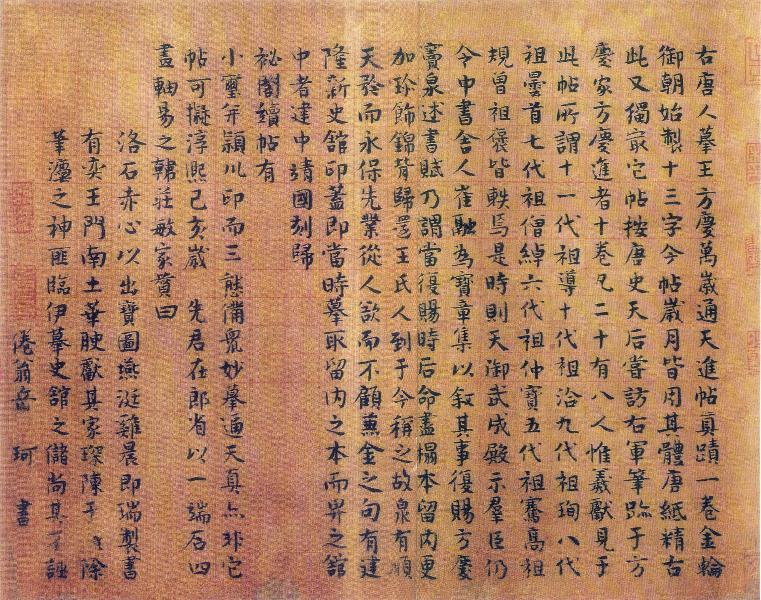 右唐人摹王方慶萬歲通天進帖真蹟一卷金輪
御朝始製十三字今帖歲月皆用其體唐紙精古
此又獨最它帖按唐史天后嘗訪右軍筆蹟于方
慶家方慶進者十卷凡二十有八人惟羲獻見于
此帖所謂十一代祖導十代祖洽九代祖珣八代
祖曇首七代祖僧綽六代祖仲寶五代祖騫高祖
規曾祖褒皆軼焉是時則天御武成殿示羣臣仍
令中書舍人崔融為寶章集以叙其事復賜方慶
竇泉述書賦乃謂當復賜時后命盡榻本留內更
加珍飾錦背歸還王氏人到于今稱之故泉有順
天矜而永保先業從人欲而不顧兼金之句有建
隆新史舘印蓋即當時摹取留內之本而畀之舘
中者建中靖國刻歸
祕閣續帖有
小璽并潁川印而三態備覓妙摹逼天真亦非它
帖可擬淳熙己亥歲 先君在郎省以一端石四
畫軸易之韓莊敏家贊曰
洛石赤心以出寶圖燕涎雞晨即瑞製書
有奕王門南土華腴獻其家琛陳于 除
筆瀘之神匪臨伊摹史舘之儲尚其 誣
倦翁岳 珂 書